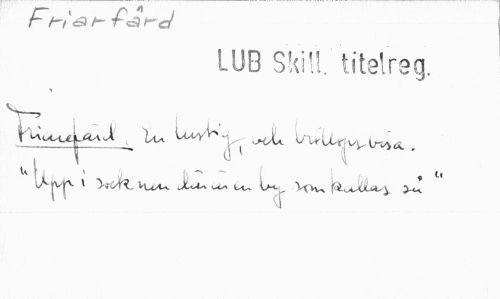 Friarfärd
LUB Skill. titelreg.
Friarefärd. En lustig, och bröllopsvisa.
"Uppi socknen där är en by som kallas så"